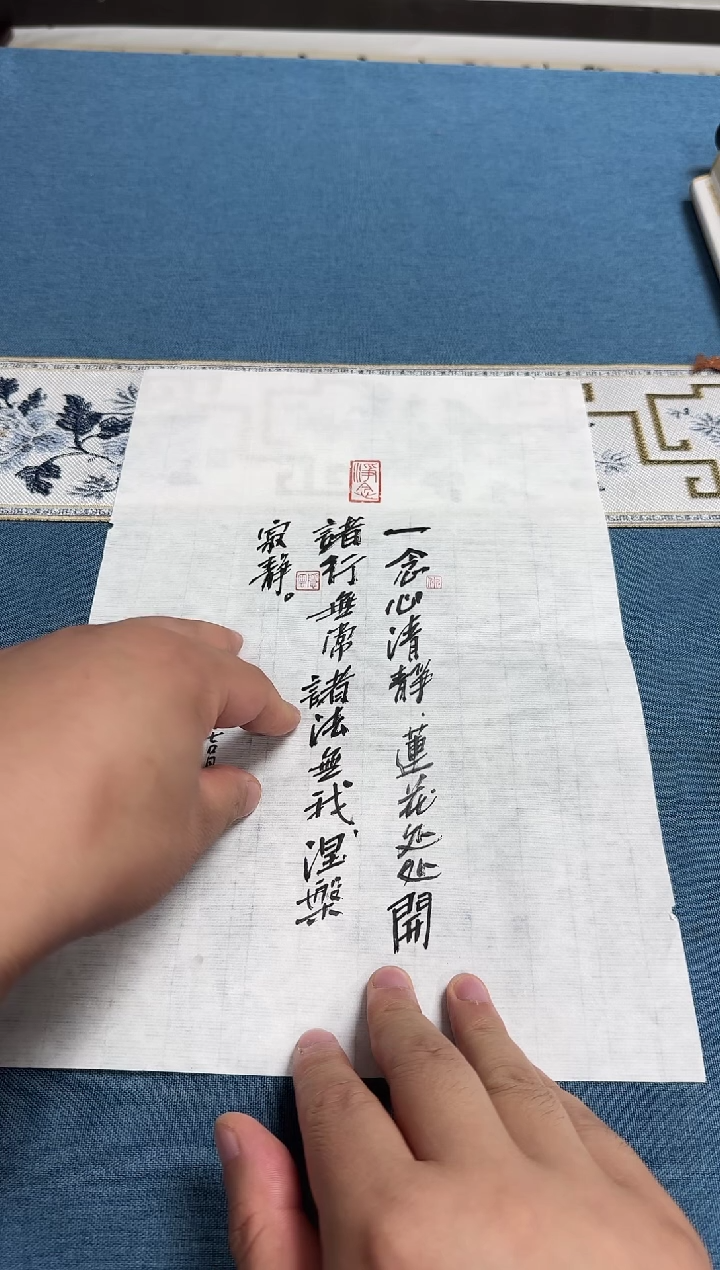 淨念
一念心清靜.蓮花处处開
諸行無常諸法無我、涅槃
寂靜。